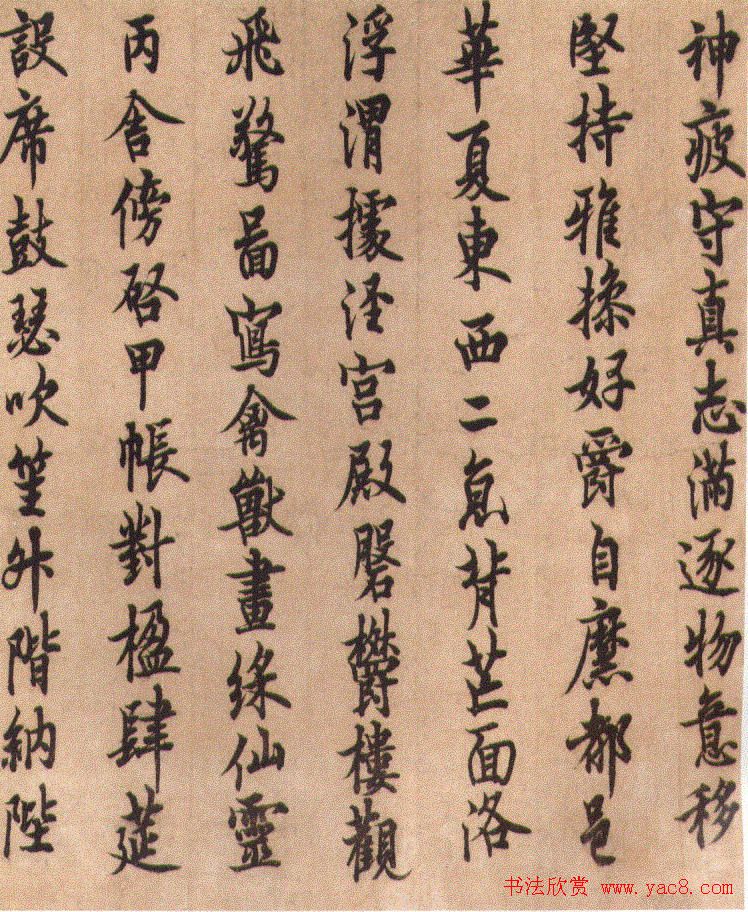 神疲守真志滿逐物意移
堅持雅操好爵自縻都邑
華夏東西二京背芒面洛
浮渭據涇宮殿磐欝樓觀
飛驚圖寫禽獸畫綵仙靈
丙舍傍啓甲帳對楹肆莚
設席鼓瑟吹笙升階納陛
书法欣赏 www.yac8.com